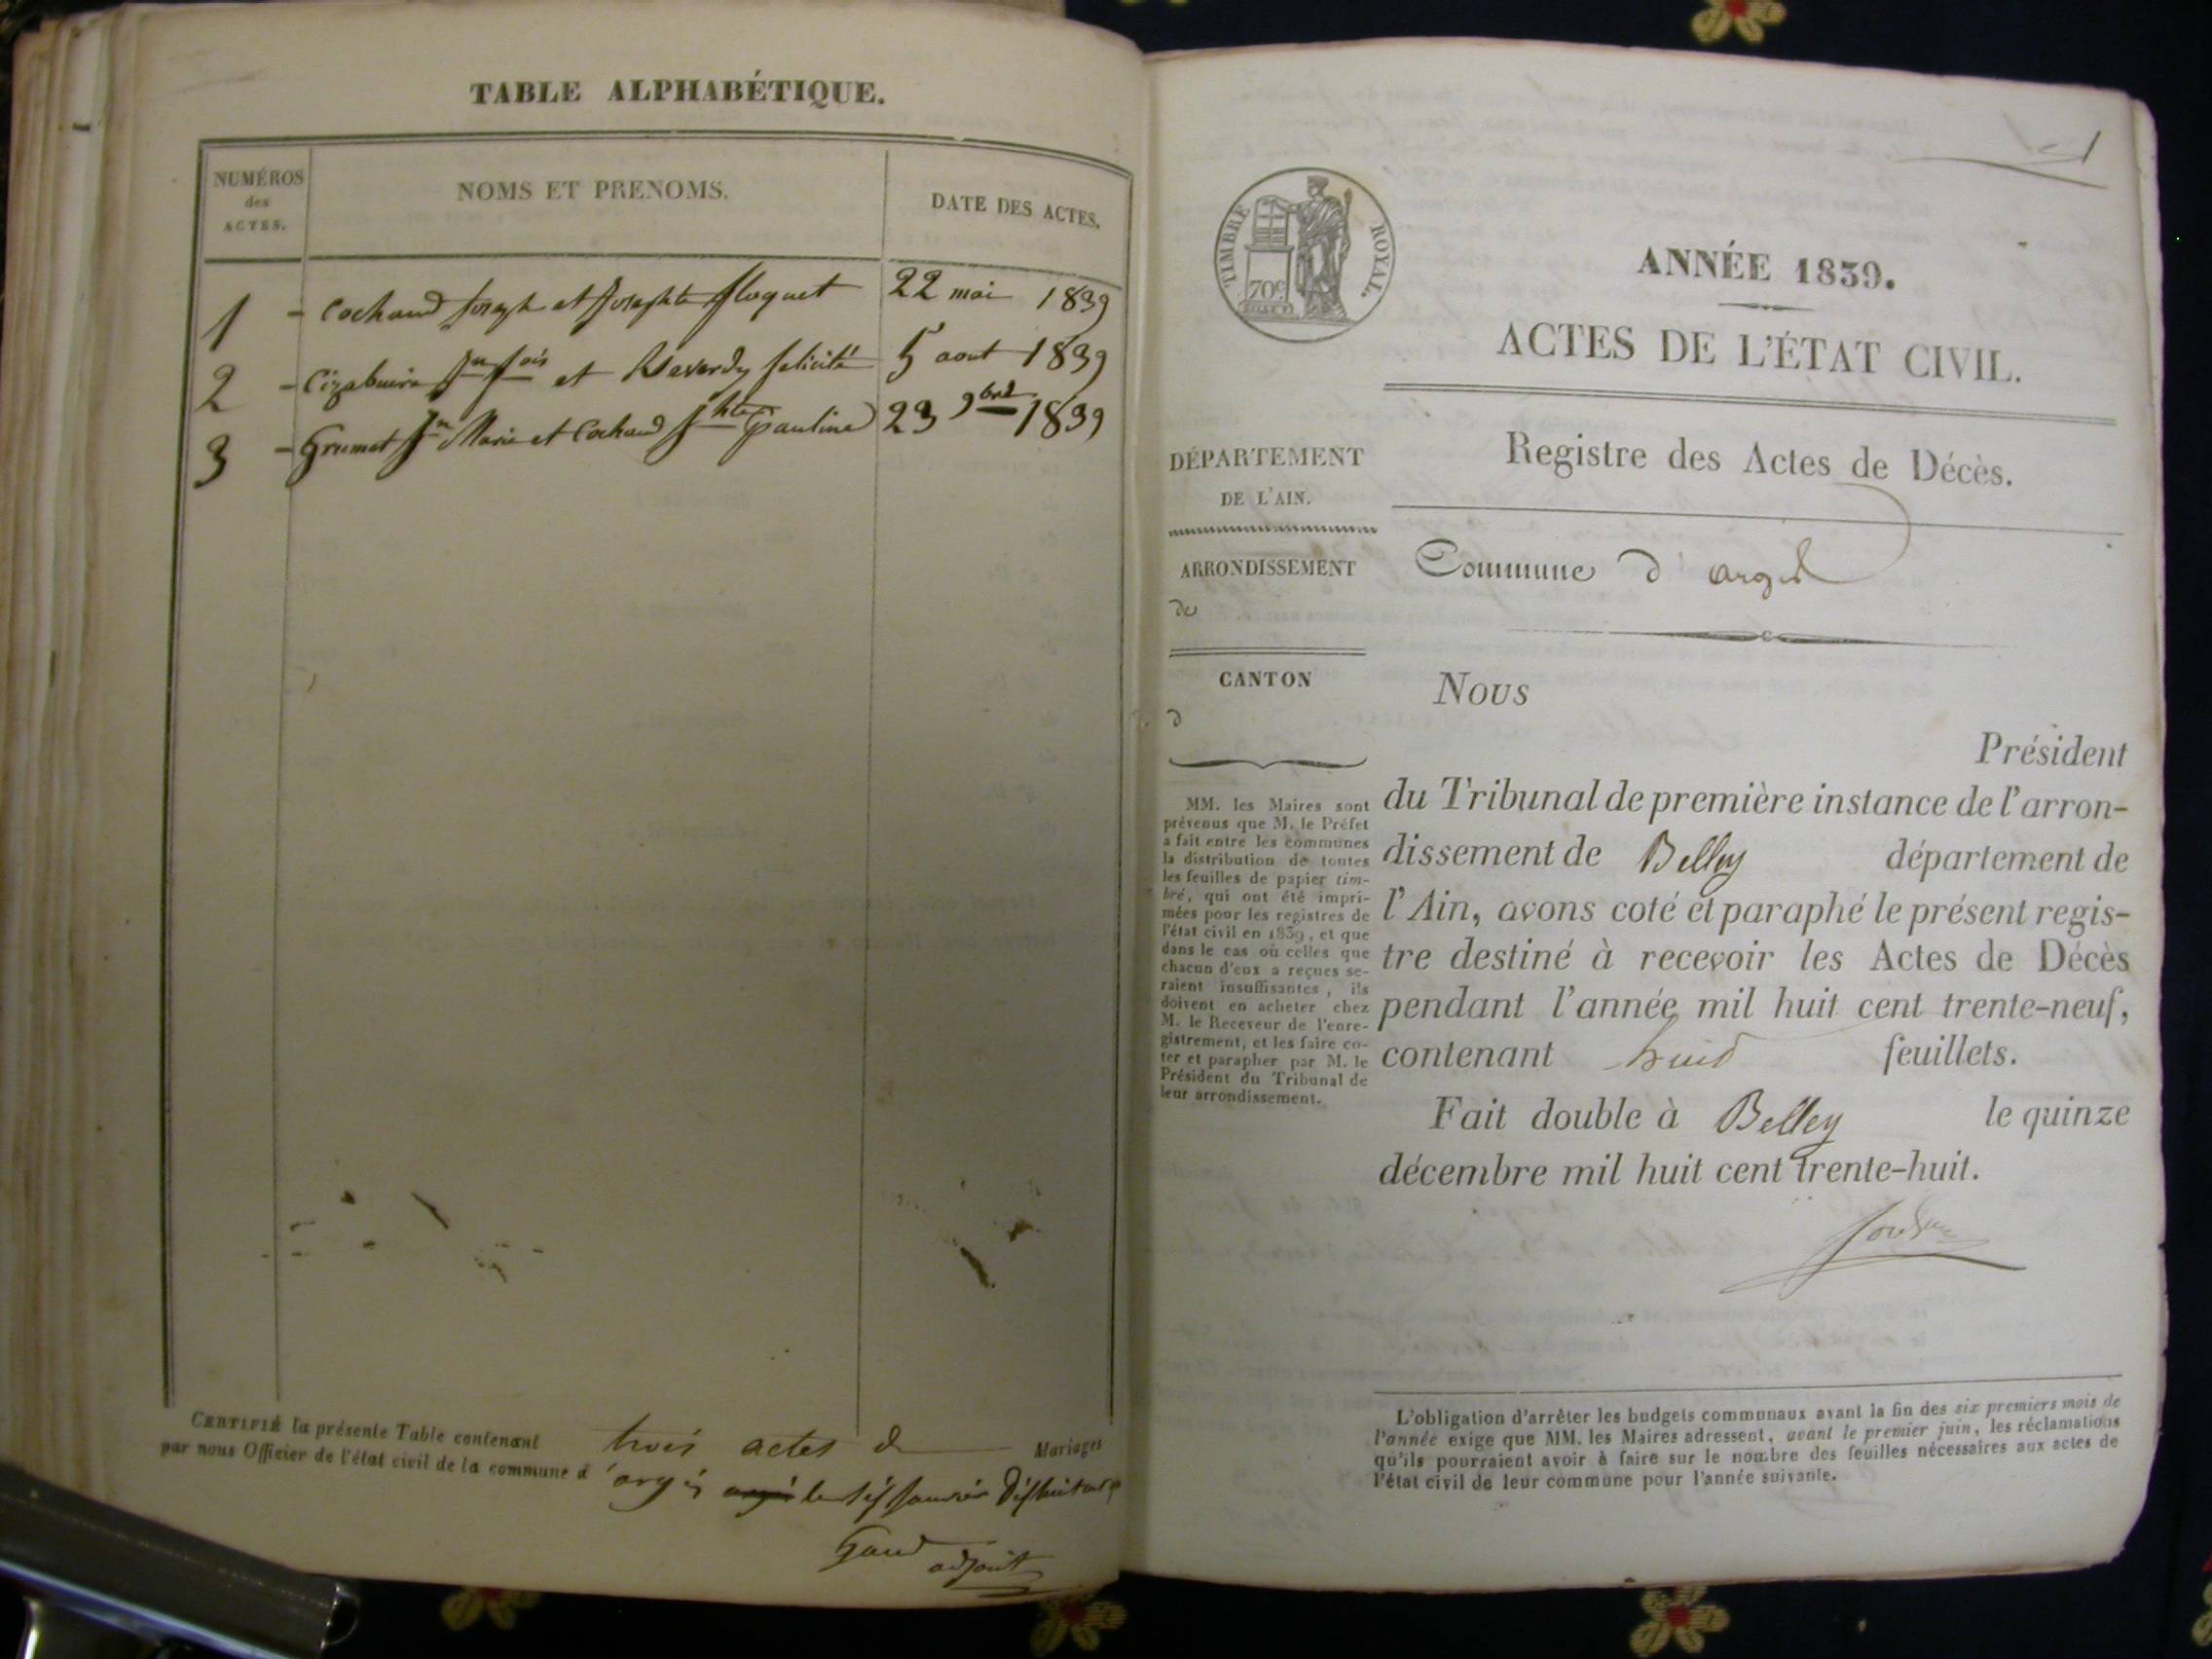 TABLE ALPHABÉTIQUE.
NUMÉROS
des
ACTES.
NOMS ET PRENOMS.
DATE DES ACTES.
1 - Cochaud Joseph et Josephte 22 mai 1839
2 - Cizabuire Jn fois et Reverdy felicité 5 aout 1839
3 - Grumet Jn Marie et Cochaud Jhte pauline 23 9bre 1839
CERTIFIÉ la présente Table contenant trois actes de Mariages
par nous Officier de l'état civil de la commune d'argis le
adjoint
1
TIMBRE ROYAL.
70c
ANNÉE 1839.
ACTES DE L'ÉTAT CIVIL.
Registre des Actes de Décès.
Commune d'argis
DÉPARTEMENT
DE L'AIN.
ARRONDISSEMENT
de
CANTON
d
MM. les Maires sont
prévenus que M. le Préfet
a fait entre les communes
la distribution de toutes
les feuilles de papier tim-
bré, qui ont été impri-
mées pour les registres de
l'état civil en 1839, et que
dans le cas où celles que
chacun d'eux a reçues se-
raient insuffisantes, ils
doivent en acheter chez
M. le Receveur de l'enre-
gistrement, et les faire co-
ter et parapher par M. le
Président du Tribunal de
leur arrondissement.
Nous
Président
du Tribunal de première instance de l'arron-
dissement de Belley département de
l'Ain, avons coté et paraphé le présent regis-
tre destiné à recevoir les Actes de Décès
pendant l'année mil huit cent trente-neuf,
contenant huit feuillets.
Fait double à Belley le quinze
décembre mil huit cent trente-huit.
L'obligation d'arrêter les budgets communaux avant la fin des six premiers mois de
l'année exige que MM. les Maires adressent, avant le premier juin, les réclamations
qu'ils pourraient avoir à faire sur le nombre des feuilles nécessaires aux actes de
l'état civil de leur commune pour l'année suivante.